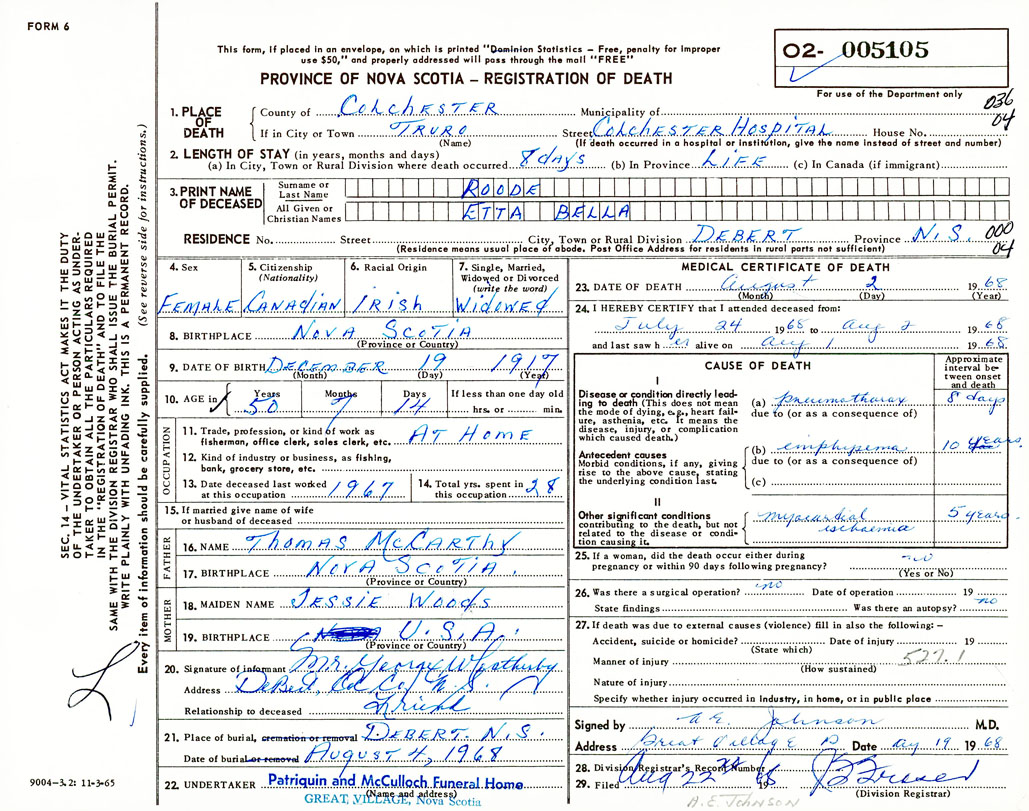 FORM 6
This form, if placed in an envelope, on which is printed "Dominion Statistics – Free, penalty for improper
use $50," and properly addressed will pass through the mail "FREE"
PROVINCE OF NOVA SCOTIA – REGISTRATION OF DEATH
02- 005105
For use of the Department only
036
04
1. PLACE OF DEATH
County of COLCHESTER Municipality of
If in City or Town TRURO Street COLCHESTER HOSPITAL House No.
(Name) (If death occurred in a hospital or institution, give the name instead of street and number)
2. LENGTH OF STAY (in years, months and days)
(a) In City, Town or Rural Division where death occurred 8 days (b) In Province LIFE (c) In Canada (if immigrant)
3. PRINT NAME OF DECEASED
Surname or Last Name ROODE
All Given or Christian Names ETTA BELLA
RESIDENCE No. Street City, Town or Rural Division DEBERT Province N.S. 000
04
(Residence means usual place of abode. Post Office Address for residents in rural parts not sufficient)
4. Sex FEMALE
5. Citizenship (Nationality) CANADIAN
6. Racial Origin IRISH
7. Single, Married, Widowed or Divorced (write the word) WIDOWED
8. BIRTHPLACE NOVA SCOTIA
(Province or Country)
9. DATE OF BIRTH DECEMBER 19 1917
(Month) (Day) (Year)
10. AGE in Years Months Days If less than one day old
50 7 14 hrs. or min.
OCCUPATION
11. Trade, profession, or kind of work as AT HOME
fisherman, office clerk, sales clerk, etc.
12. Kind of industry or business, as fishing,
bank, grocery store, etc.
13. Date deceased last worked at this occupation 1967
14. Total yrs. spent in this occupation 28
15. If married give name of wife
or husband of deceased
FATHER
16. NAME THOMAS McCARTHY
17. BIRTHPLACE NOVA SCOTIA.
(Province or Country)
MOTHER
18. MAIDEN NAME JESSIE WOODS
19. BIRTHPLACE U.S.A.
(Province or Country)
20. Signature of informant Mr. George Wetherby
Address DeBert, Col. Co. N.S.
Relationship to deceased Friend
21. Place of burial, cremation or removal DEBERT. N.S.
Date of burial or removal AUGUST 4, 1968
22. UNDERTAKER Patriquin and McCulloch Funeral Home
(Name and address)
GREAT VILLAGE, Nova Scotia
MEDICAL CERTIFICATE OF DEATH
23. DATE OF DEATH August 2 1968
(Month) (Day) (Year)
24. I HEREBY CERTIFY that I attended deceased from:
July 24 1968 to Aug 2 1968
and last saw her alive on Aug 1 1968
CAUSE OF DEATH
Approximate interval between onset and death
I
Disease or condition directly leading to death (This does not mean
the mode of dying, e.g., heart failure, asthenia, etc. It means the
disease, injury, or complication
which caused death.)
(a) pneumothorax 8 days
due to (or as a consequence of)
Antecedent causes
Morbid conditions, if any, giving
rise to the above cause, stating
the underlying condition last.
(b) emphysema 10 years.
due to (or as a consequence of)
(c)
II
Other significant conditions
contributing to the death, but not
related to the disease or condition causing it.
myocardial ischaemia 5 years.
25. If a woman, did the death occur either during
pregnancy or within 90 days following pregnancy? no
(Yes or No)
26. Was there a surgical operation? no Date of operation 19
State findings Was there an autopsy? no
27. If death was due to external causes (violence) fill in also the following: –
Accident, suicide or homicide? Date of injury 19
(State which)
Manner of injury 527.1
(How sustained)
Nature of injury
Specify whether injury occurred in industry, in home, or in public place
Signed by A.E. Johnson M.D.
Address Great Village Date Aug 19 1968
28. Division Registrar's Record Number
29. Filed Aug 22nd 1968
(Division Registrar)
A.E. JOHNSON
SEC. 14 – VITAL STATISTICS ACT MAKES IT THE DUTY
OF THE UNDERTAKER OR PERSON ACTING AS UNDER-
TAKER TO OBTAIN ALL THE PARTICULARS REQUIRED
IN THE "REGISTRATION OF DEATH" AND TO FILE THE
SAME WITH THE DIVISION REGISTRAR WHO SHALL ISSUE THE BURIAL PERMIT.
WRITE PLAINLY WITH UNFADING INK. THIS IS A PERMANENT RECORD.
Every item of information should be carefully supplied. (See reverse side for instructions.)
9004–3.2: 11-3-65